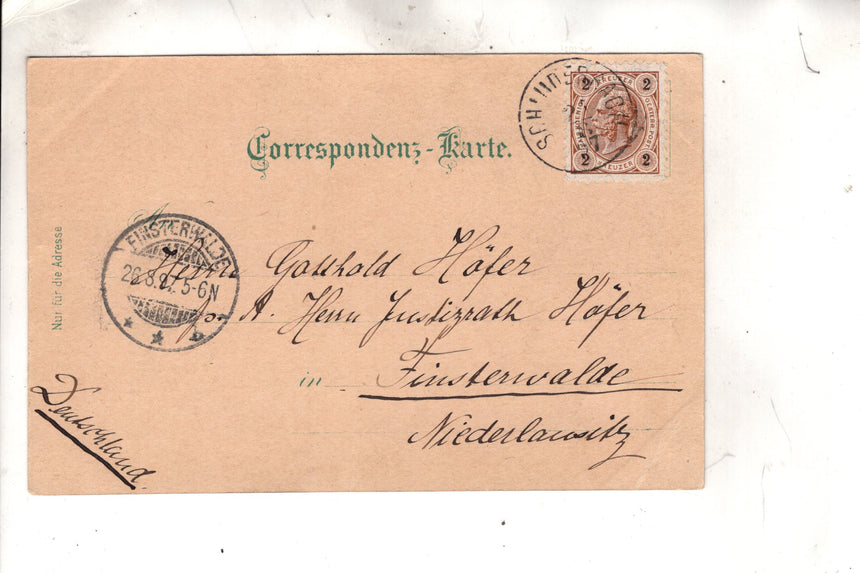 Correspondenz-Karte.
2 KREUZER 2
OESTERR. POST
2 KREUZER 2
Nur für die Adresse
An
FINSTERWALDE
26.8.97. 5-6N
* * b
Herrn Gotthold Höfer
A. Herrn Justizrath Höfer
in Finsterwalde
Niederlausitz
Deutschland.